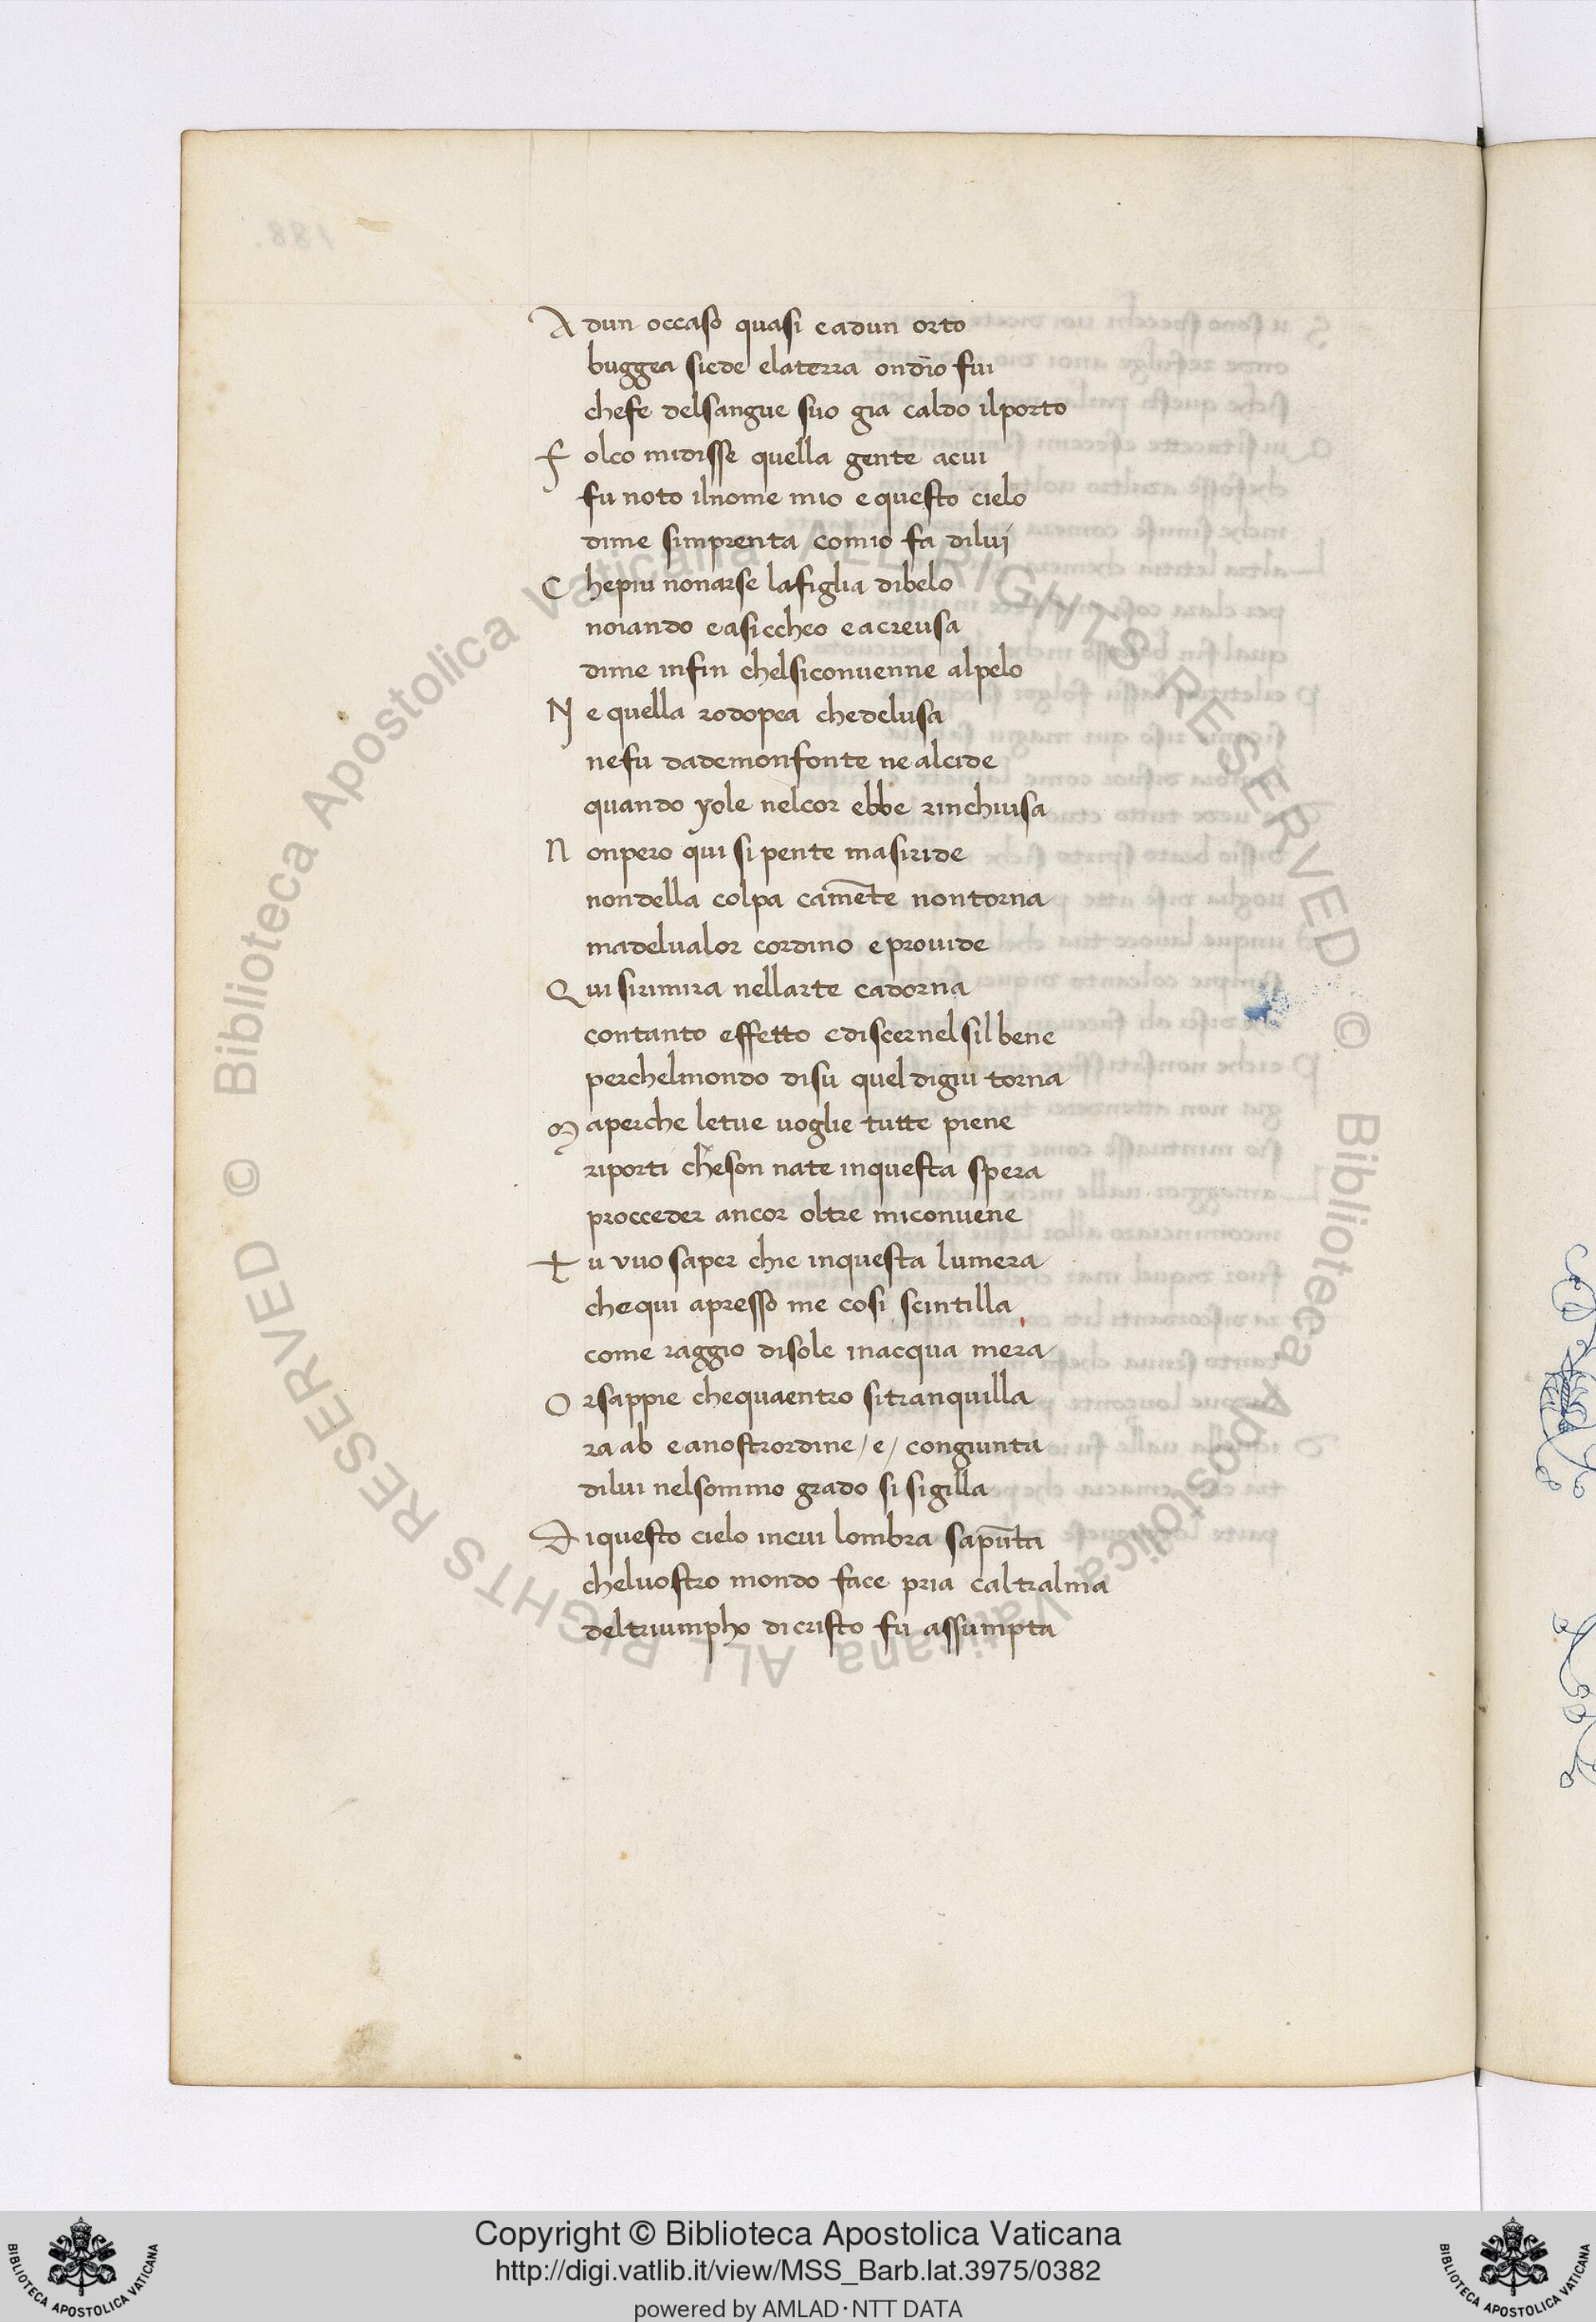 A dun occaso quasi eadun orto
buggea siede elaterra ondīo fui
chefe delsangue suo gia caldo ilporto
F olco midisse quella gente acui
fu noto ilnome mio equesto cielo
dime simprenta comio fa dilui
C hepiu nonarse lafiglia dibelo
noiando easiccheo eacreusa
dime infin chelsiconuenne alpelo
N e quella rodopea chedelusa
nefu dademonfonte ne alcide
quando yole nelcor ebbe rinchiusa
N onpero qui sipente masiride
nondella colpa camēte nontorna
madelualor cordino eprouide
Q ui sirimira nellarte cadorna
contanto effetto ediscernelsilbene
perchelmondo disu quel digiu torna
M aperche letue uoglie tutte piene
riporti cheson nate inquesta spera
procceder ancor oltre miconuene
T u vuo saper chie inquesta lumera
chequi apresso me cosi scintilla
come raggio disole inacqua mera
O rsappie chequaentro sitranquilla
raab eanostrordine/e/congiunta
dilui nelsommo grado sisigilla
D iquesto cielo incui lombra sapūta
cheluostro mondo face pria caltralma
deltriumpho dicristo fu assumpta
188.
© Biblioteca Apostolica Vaticana ALL RIGHTS RESERVED © Biblioteca Apostolica Vaticana ALL RIGHTS RESERVED
BIBLIOTECA APOSTOLICA VATICANA
Copyright © Biblioteca Apostolica Vaticana
http://digi.vatlib.it/view/MSS_Barb.lat.3975/0382
powered by AMLAD·NTT DATA
BIBLIOTECA APOSTOLICA VATICANA